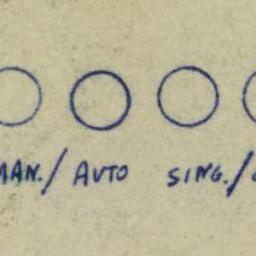 MAN./ AUTO SING./